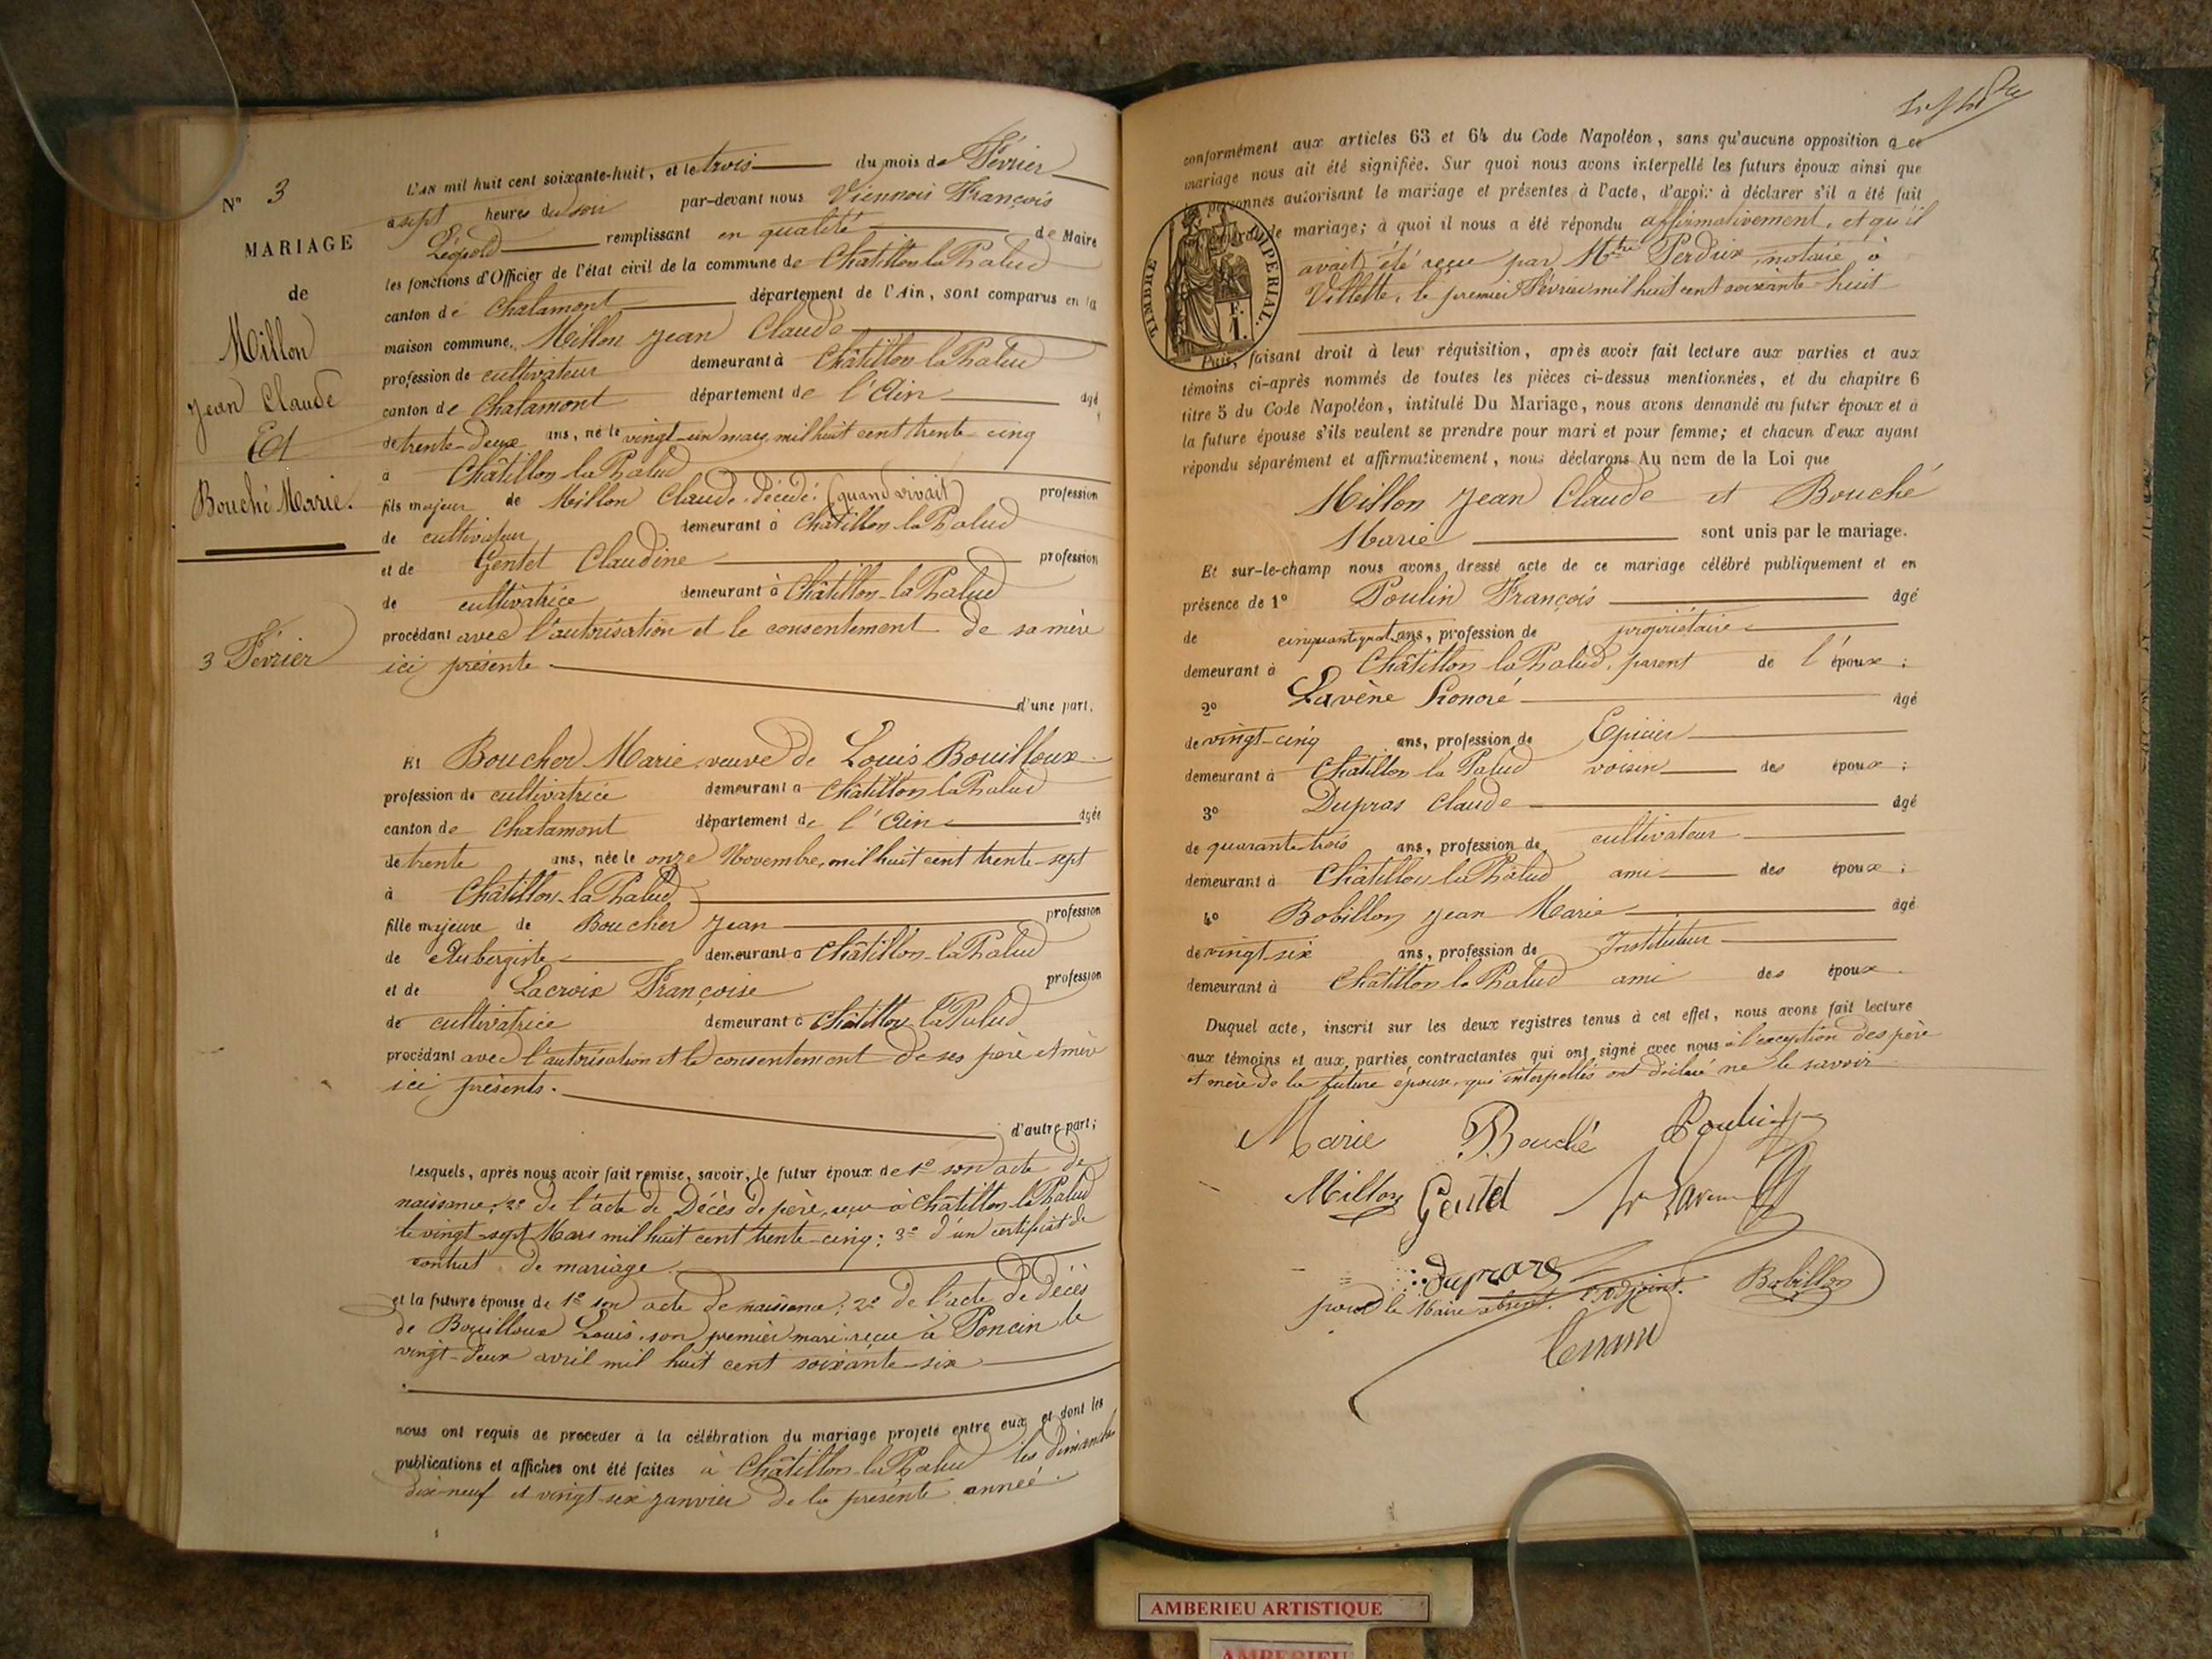 N° 3
MARIAGE
de
Millon
Jean Claude
Et
Bouché Marie.
3 Février
L'AN mil huit cent soixante-huit, et le trois du mois de Février
à sept heures du soir par-devant nous Viennois François
Léopold remplissant en qualité de Maire
les fonctions d'Officier de l'état civil de la commune de Châtillon la Palud
canton de Chalamont département de l'Ain, sont comparus en la
maison commune, Millon Jean Claude
profession de cultivateur demeurant à Châtillon la Palud
canton de Chalamont département de l'Ain âgé
de trente-deux ans, né le vingt-un mars mil huit cent trente-cinq
à Châtillon la Palud
fils majeur de Millon Claude, décédé. (quand vivait) profession
de cultivateur demeurant à Châtillon-la Palud
et de Gentet Claudine profession
de cultivatrice demeurant à Châtillon-la Palud
procédant avec l'autorisation et le consentement de sa mère
ici présente
d'une part.
Et Boucher Marie, veuve de Louis Bouilloux
profession de cultivatrice demeurant à Châtillon la Palud
canton de Chalamont département de l'Ain âgée
de trente ans, née le onze Novembre, mil huit cent trente-sept
à Châtillon-la Palud
fille majeure de Boucher Jean profession
de Aubergiste demeurant à Châtillon-la Palud
et de Lacroix Françoise profession
de cultivatrice demeurant à Châtillon la Palud
procédant avec l'autorisation et le consentement de ses père et mère
ici présents.
d'autre part;
Lesquels, après nous avoir fait remise, savoir, le futur époux de 1° son acte de
naissance; 2° de l'acte de Décès de père, reçu à Châtillon-la Palud
le vingt-sept Mars mil huit cent trente-cinq; 3° d'un certificat de
contrat de mariage.
et la future épouse de 1° son acte de naissance; 2° de l'acte de décès
de Bouilloux Louis, son premier mari, reçu à Poncin le
vingt-deux avril mil huit cent soixante-six
nous ont requis de procéder à la célébration du mariage projeté entre eux et dont les
publications et affiches ont été faites à Châtillon-la Palud les dimanches
dix-neuf et vingt-six janvier de la présente année.
conformément aux articles 63 et 64 du Code Napoléon, sans qu'aucune opposition à ce
mariage nous ait été signifiée. Sur quoi nous avons interpellé les futurs époux ainsi que
personnes autorisant le mariage et présentes à l'acte, d'avoir à déclarer s'il a été fait
de mariage; à quoi il nous a été répondu affirmativement, et qu'il
avait été reçu par Mtre Perdrix, notaire à
Villette, le premier Février mil huit cent soixante-huit
TIMBRE IMPERIAL.
Puis, faisant droit à leur réquisition, après avoir fait lecture aux parties et aux
témoins ci-après nommés de toutes les pièces ci-dessus mentionnées, et du chapitre 6
titre 5 du Code Napoléon, intitulé Du Mariage, nous avons demandé au futur époux et à
la future épouse s'ils veulent se prendre pour mari et pour femme; et chacun d'eux ayant
répondu séparément et affirmativement, nous déclarons Au nom de la Loi que
Millon Jean Claude et Bouché
Marie sont unis par le mariage.
Et sur-le-champ nous avons dressé acte de ce mariage célébré publiquement et en
présence de 1° Poulin François âgé
de ans, profession de propriétaire
demeurant à Châtillon la Palud, parent de l'époux;
2° Lavène Honoré âgé
de vingt-cinq ans, profession de Epicier
demeurant à Châtillon la Palud voisin des époux;
3° Dupras Claude âgé
de quarante-trois ans, profession de cultivateur
demeurant à Châtillon la Palud ami des époux;
4° Bobillon Jean Marie âgé
de vingt-six ans, profession de Instituteur
demeurant à Châtillon la Palud ami des époux.
Duquel acte, inscrit sur les deux registres tenus à cet effet, nous avons fait lecture
aux témoins et aux parties contractantes qui ont signé avec nous à l'exception des père
et mère de la future épouse, qui interpellés ont déclaré ne le savoir
Marie Bouché Poulin
Millon Gentet
Dupras Bobillon
pour le Maire absent. l'adjoint.
AMBERIEU ARTISTIQUE
AMBERIEU